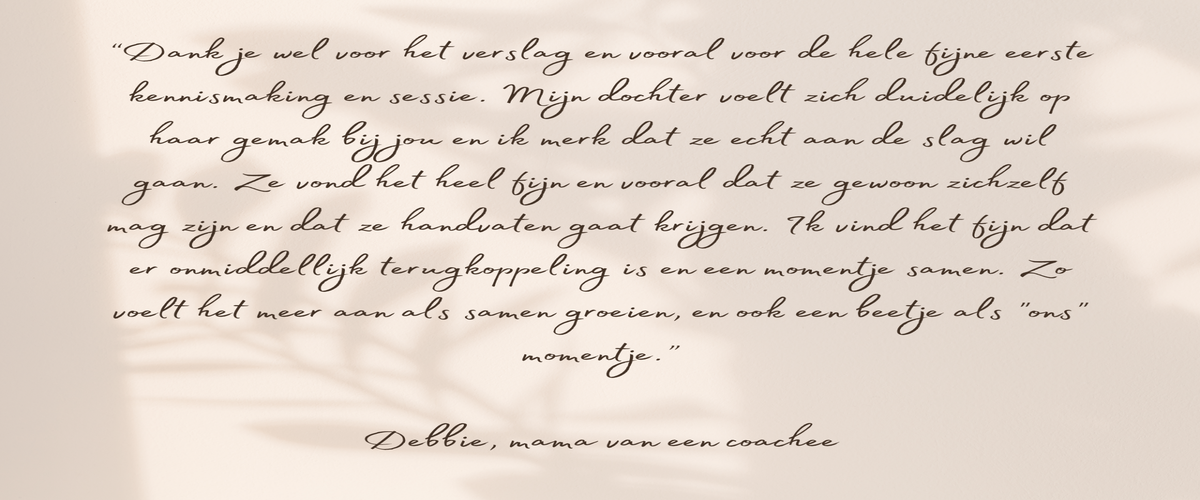 “Dank je wel voor het verslag en vooral voor de hele fijne eerste
kennismaking en sessie. Mijn dochter voelt zich duidelijk op
haar gemak bij jou en ik merk dat ze echt aan de slag wil
gaan. Ze vond het heel fijn en vooral dat ze gewoon zichzelf
mag zijn en dat ze handvaten gaat krijgen. Ik vind het fijn dat
er onmiddellijk terugkoppeling is en een momentje samen. Zo
voelt het meer aan als samen groeien, en ook een beetje als "ons"
momentje.”
Debbie, mama van een coachee